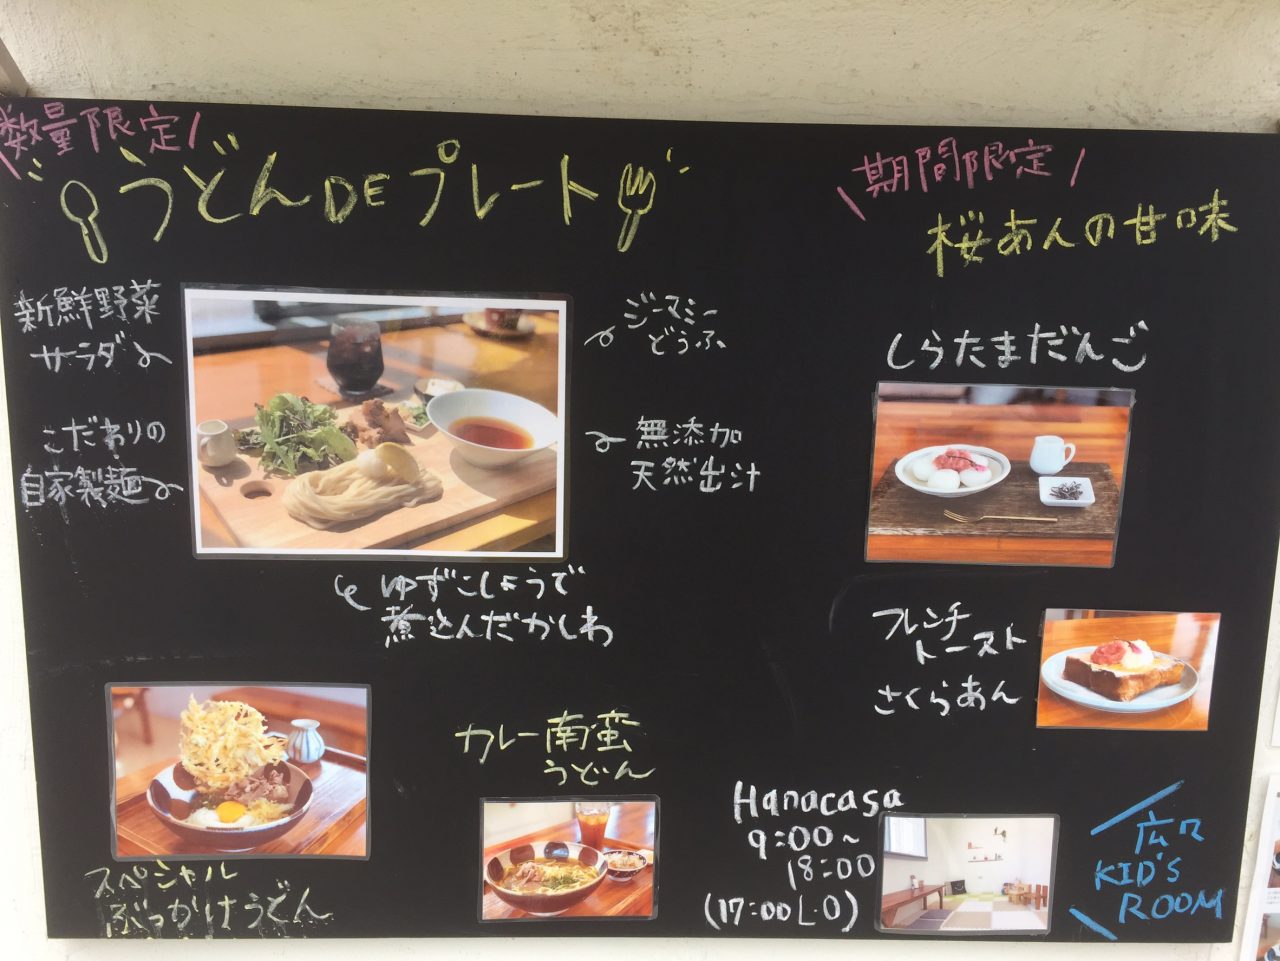 数量限定
うどんDEプレート
新鮮野菜
サラダ
こだわりの
自家製麺
ジーマミー
どうふ
無添加
天然出汁
ゆずこしょうで
煮込んだかしわ
スペシャル
ぶっかけうどん
カレー南蛮
うどん
期間限定
桜あんの甘味
しらたまだんご
フレンチ
トースト
さくらあん
Hanacasa
9:00~
18:00
(17:00L.O)
広々
KID'S
ROOM